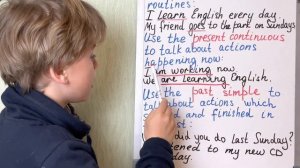 routines:
I learn English every day.
My friend goes to the park on Sundays
Use the present continuous
to talk about actions
happening now:
I'm working now
We are learning English.
Use the past simple to
talk about actions which
and finished in
did you do last Sunday?
to my new CD
day.